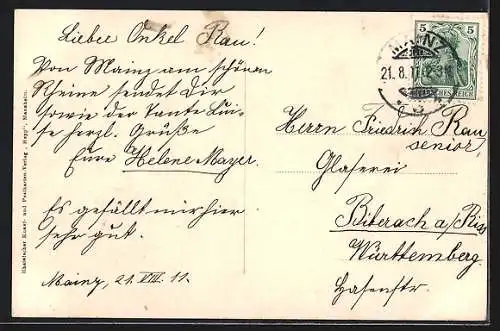 Lieber Onkel Rau!
Von Mainz am schönen
Rheine sendet Dir
sowie der Tante Lui-
se herzl. Grüße
Eure Helene Mayer.
Es gefällt mir hier
sehr gut.
Mainz, 21. VIII. 11.
Rheinischer Kunst- und Postkarten-Verlag „Hepp", Mannheim.
5 5
MAINZ
21.8.11.
Herrn Friedrich Rau
senior,
Glaserei
Biberach a/Riss
Württemberg.
Hasenstr.